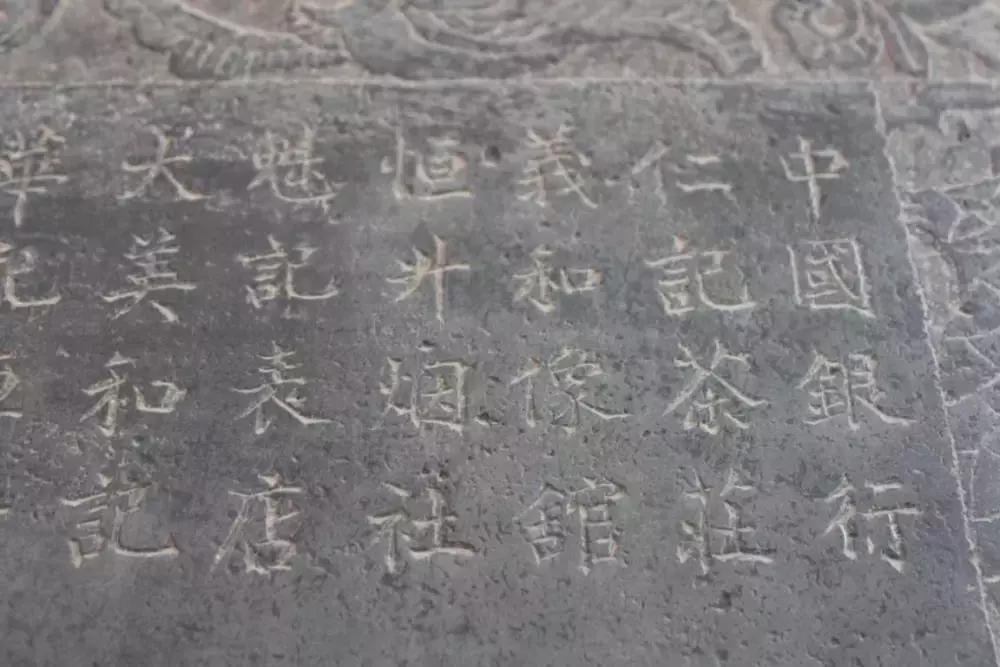 中國銀行
仁記茶莊
義和像舘
恒升烟社
魁記表店
大美和記